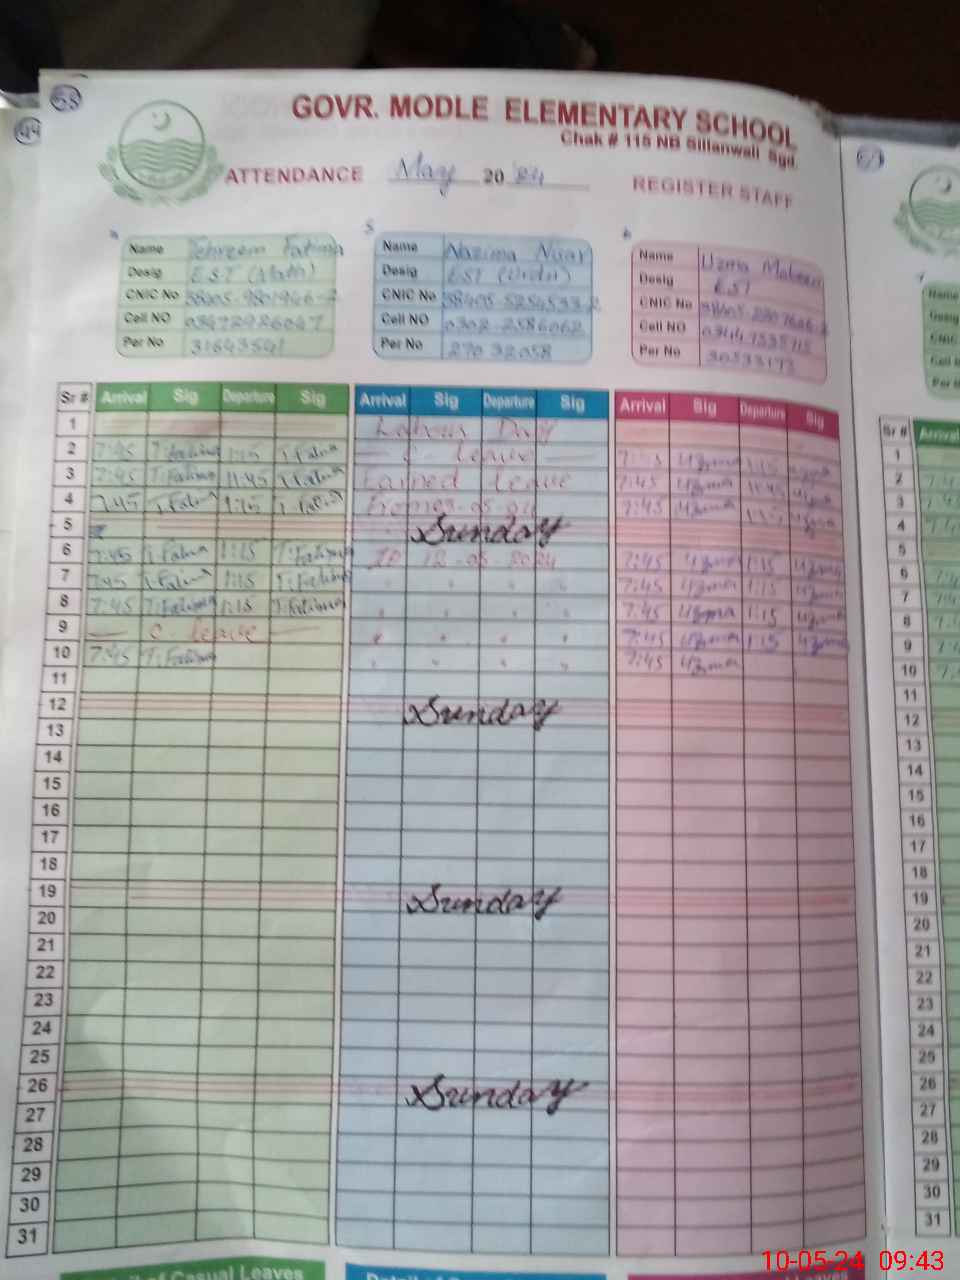 53
44
GOVR. MODLE ELEMENTARY SCHOOL
Chak # 115 NB Sillanwali Sgd.
ATTENDANCE May 20 '24 REGISTER STAFF
Name Tehreem Fatima
Desig E.S.T (Math)
CNIC No
Cell NO 03472926047
Per No 31643541
5
Name Nazima Nisar
Desig EST (Urdu)
CNIC No 38405-5254533-2
Cell NO 0302-2586062
Per No 27032058
6
Name Uzma
Desig EST
CNIC No
Cell NO
Per No 30533173
Sr # Arrival Sig Departure Sig Arrival Sig Departure Sig Arrival Sig Departure Sig
1 Labour Day
2 7:45 T.Fatima 1:15 T.Fatima C. leave 1:15 Uzma
3 7:45 T.Fatima 11:45 T.Fatima Earned leave 7:45 Uzma 11:45 Uzma
4 7:45 T.Fatima 1:15 T.Fatima 7:45 Uzma 1:15 Uzma
5 Sunday
6 7:45 T.Fatima 1:15 T.Fatima To 12-05-2024 7:45 Uzma 1:15 Uzma
7 7:45 T.Fatima 1:15 T.Fatima 7:45 Uzma 1:15 Uzma
8 7:45 T.Fatima 1:15 T.Fatima 7:45 Uzma 1:15 Uzma
9 C. leave 7:45 Uzma 1:15 Uzma
10 7:45 T.Fatima 7:45 Uzma
11
12 Sunday
13
14
15
16
17
18
19 Sunday
20
21
22
23
24
25
26 Sunday
27
28
29
30
31
Sr # Arrival
1
2
3
4
5
6
7
8
9
10
11
12
13
14
15
16
17
18
19
20
21
22
23
24
25
26
27
28
29
30
31
of Casual Leaves
10-05-24 09:43